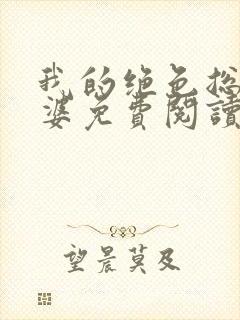 我的绝色总
婆免費閱讀
望晨莫及